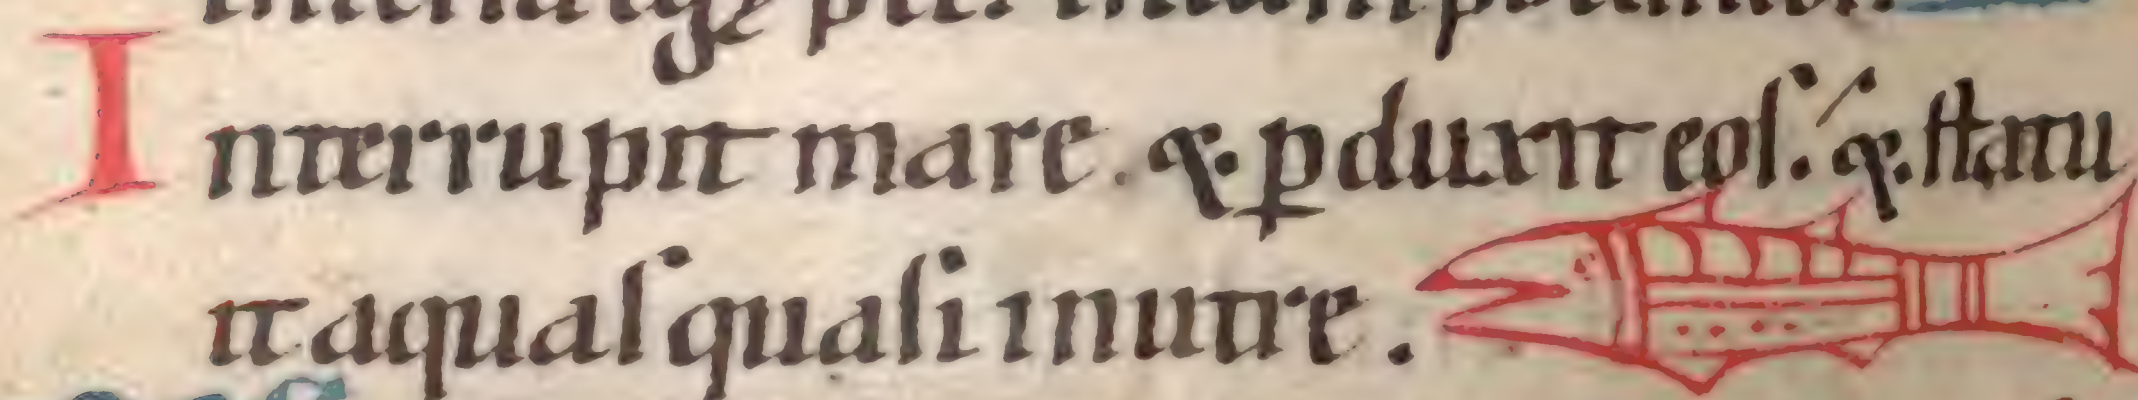 Interrupit mare. &. ꝑduxit eoſ. &. ſtatu
it aquaſ quaſi in utre.